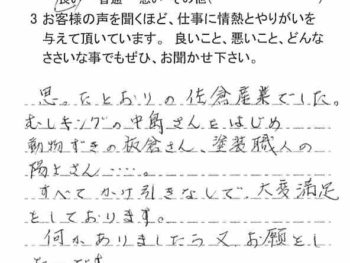 良い 普通 悪い その他(
3 お客様の声を聞くほど、仕事に情熱とやりがいを
与えて頂いています。 良いこと、悪いこと、どんな
ささいな事でもぜひ、お聞かせ下さい。
思ったとおりの佐倉産業でした。
むしキングの中島さんをはじめ
動物ずきの板倉さん、塗装職人の
陽上さん・・・・。
すべてかけ引きなしで、大変満足
をしております。
何かありましたら又、お願いし
たいです